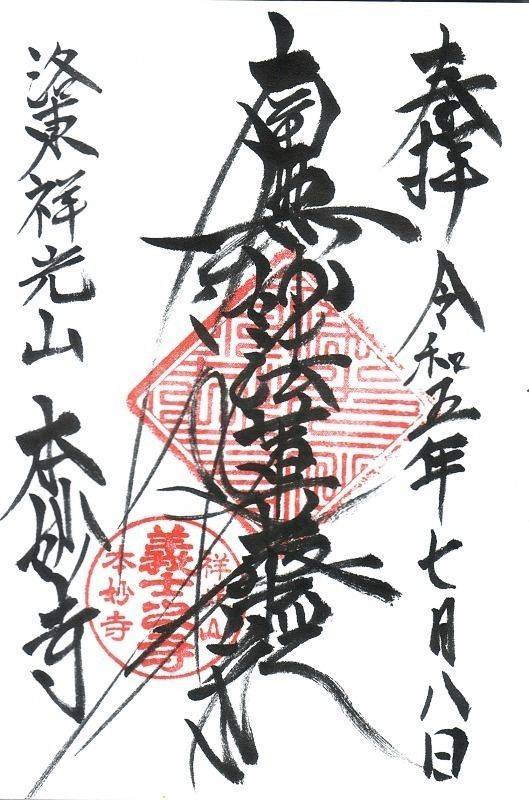 奉拝
令和五年七月八日
南無妙法蓮華経
洛東祥光山
本妙寺
祥光山
義士之寺
本妙寺